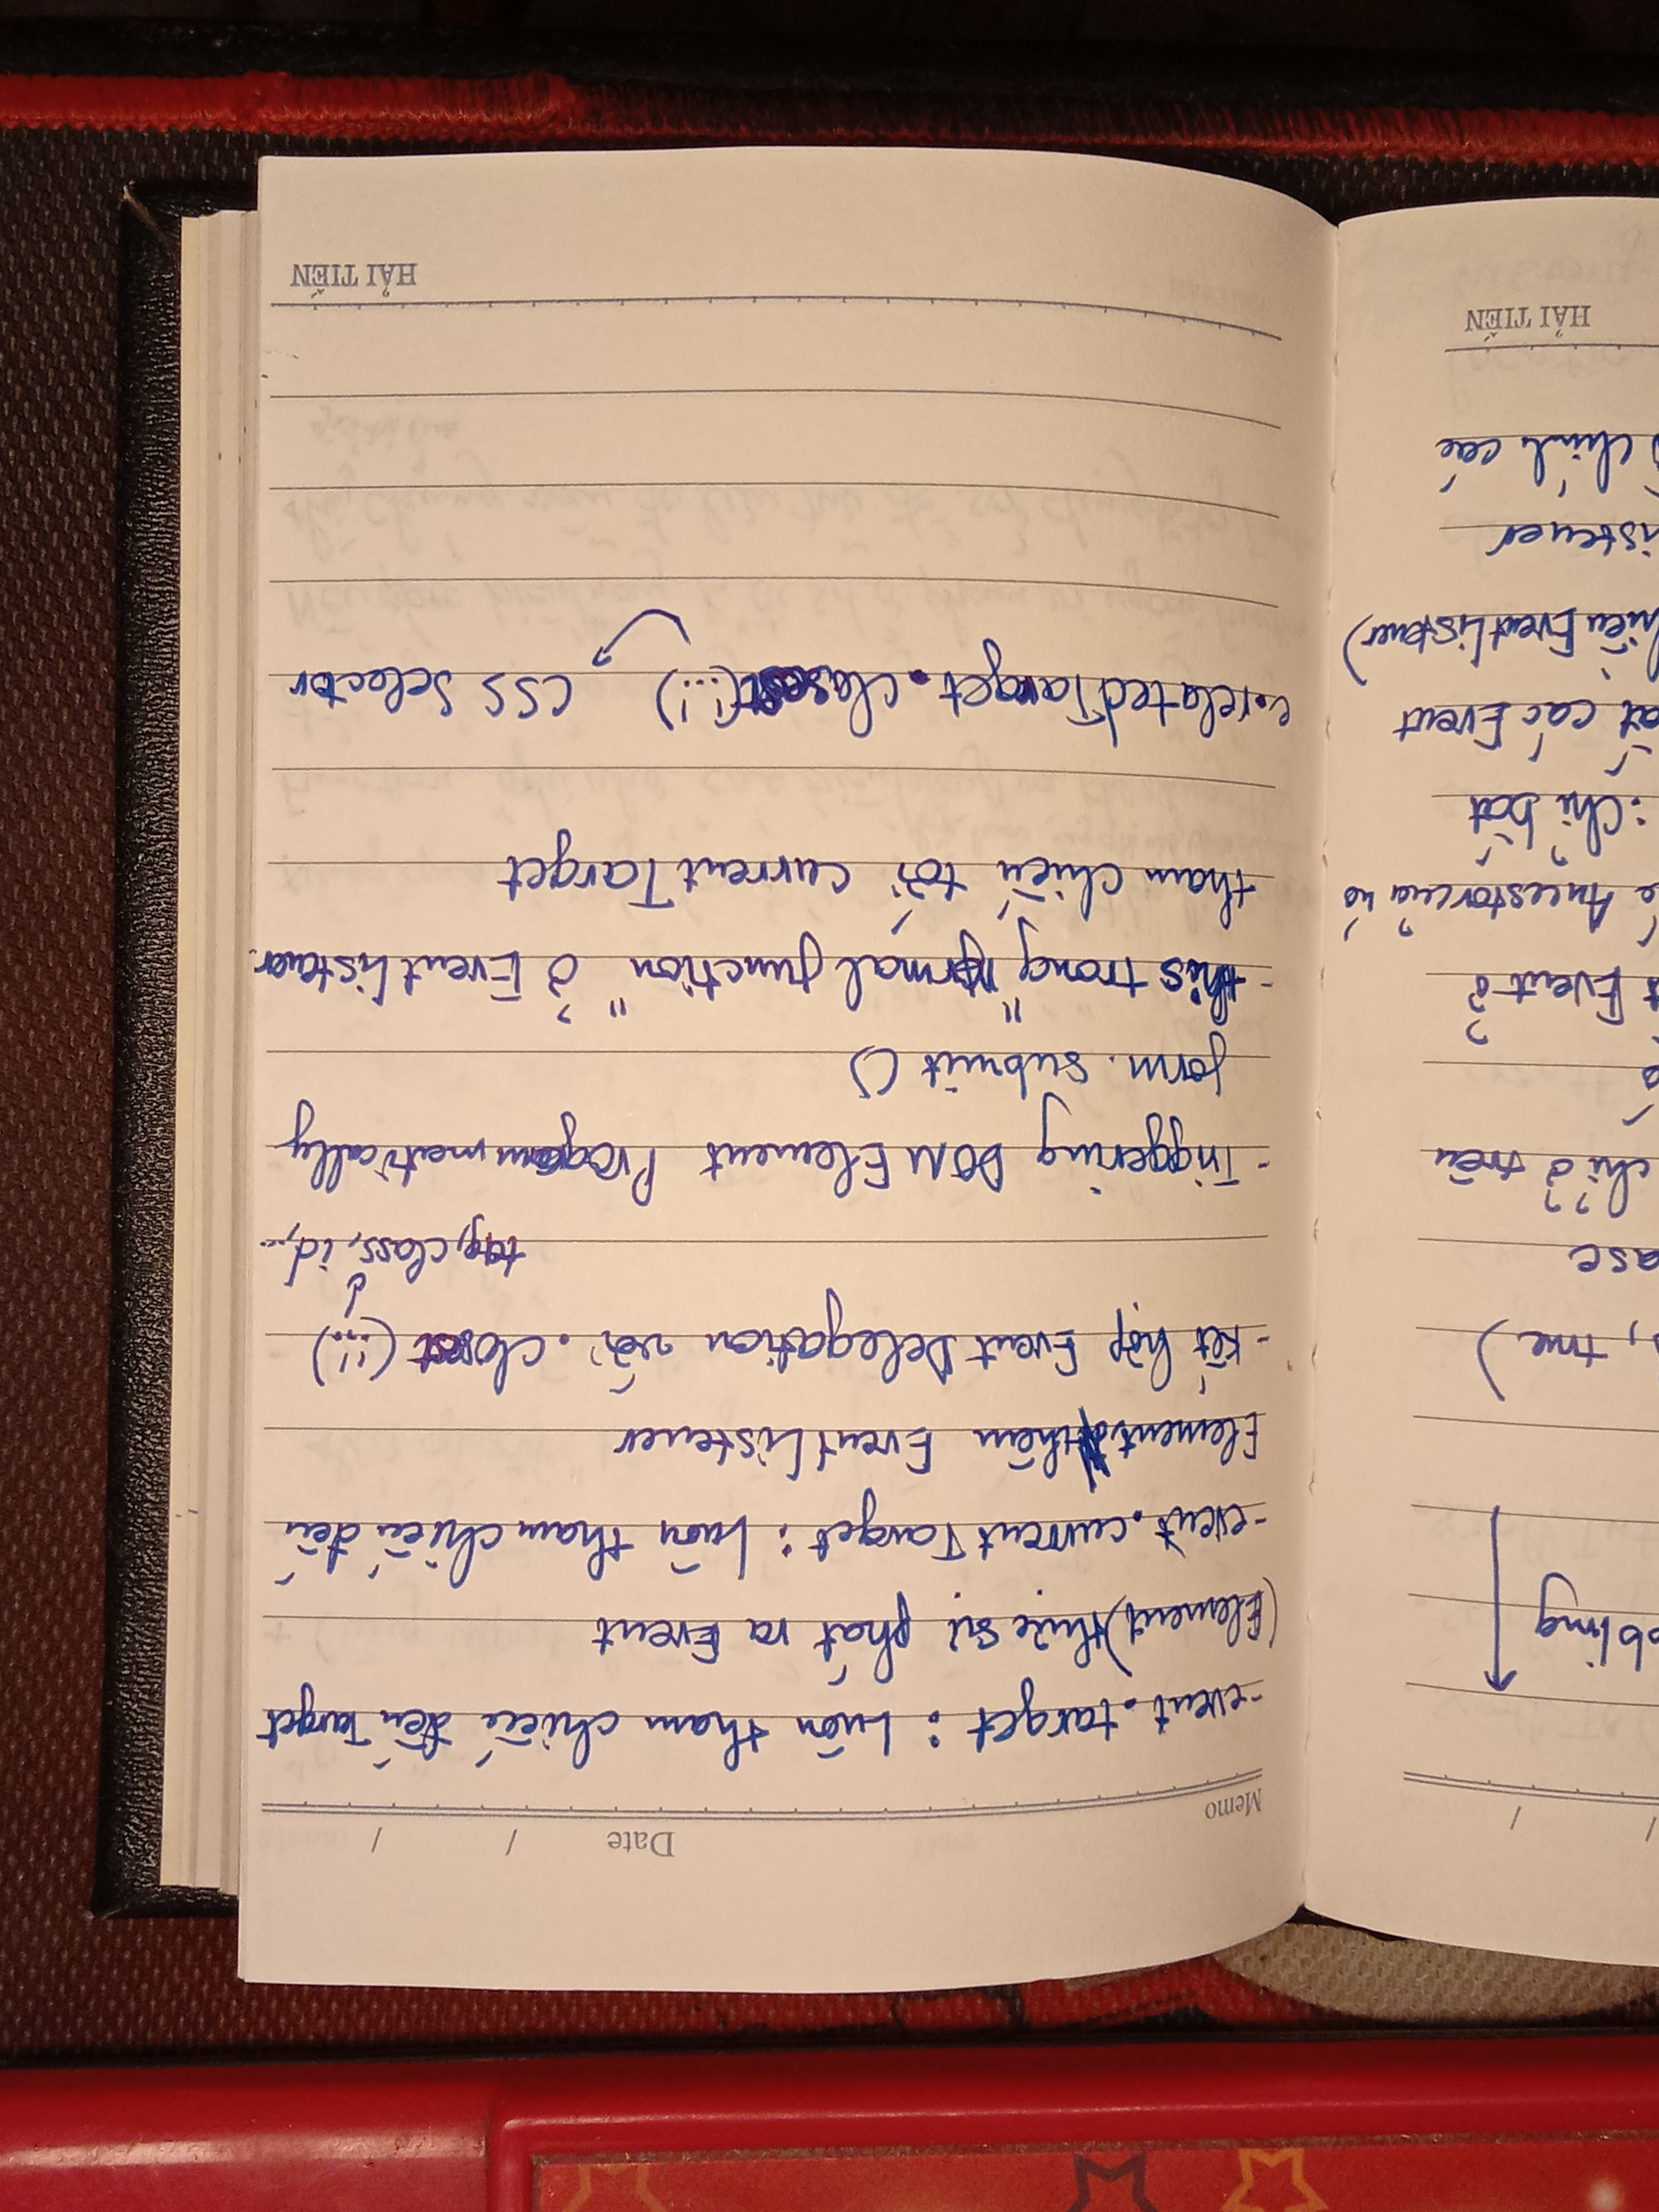 / /
obling
, true)
ase
chỉ ở trên
ó
Event ở
Ancestor của nó
: chỉ bắt
ắt các Event
hiều EventListener)
istener
chính các
HẢI TIẾN
Memo Date / /
- event.target : Luôn tham chiếu đến Target
(Element) thực sự phát ra Event
- event.currentTarget : Luôn tham chiếu đến
Element thêm EventListener
- Kết hợp Event Delegation với .closest (!..!)
tag, class, id,...
- Triggering DOM Element Programmatically
form. submit ()
- this trong "normal function" ở EventListener.
tham chiếu tới currentTarget
e.relatedTarget.closest(!..!) CSS Selector
HẢI TIẾN